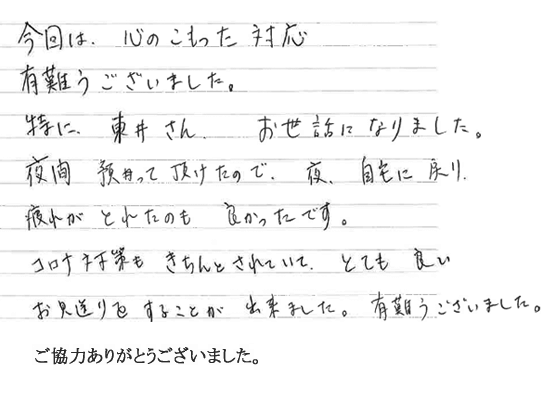 今回は、心のこもった対応
有難うございました。
特に、東井さん、お世話になりました。
夜間 預かって頂けたので、夜、自宅に戻り、
疲れがとれたのも 良かったです。
コロナ対策も きちんとされていて、とても良い
お見送りをすることが 出来ました。有難うございました。
ご協力ありがとうございました。